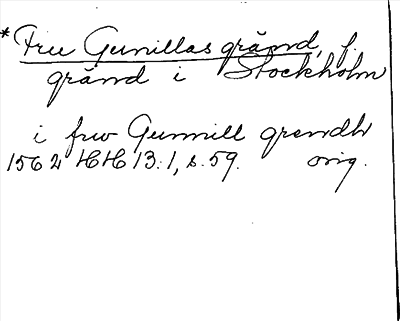 * Fru Gunillas gränd, f.
gränd i Stockholm
i frw Gunnill grendh
1562 HH 13:1, s. 59. orig.